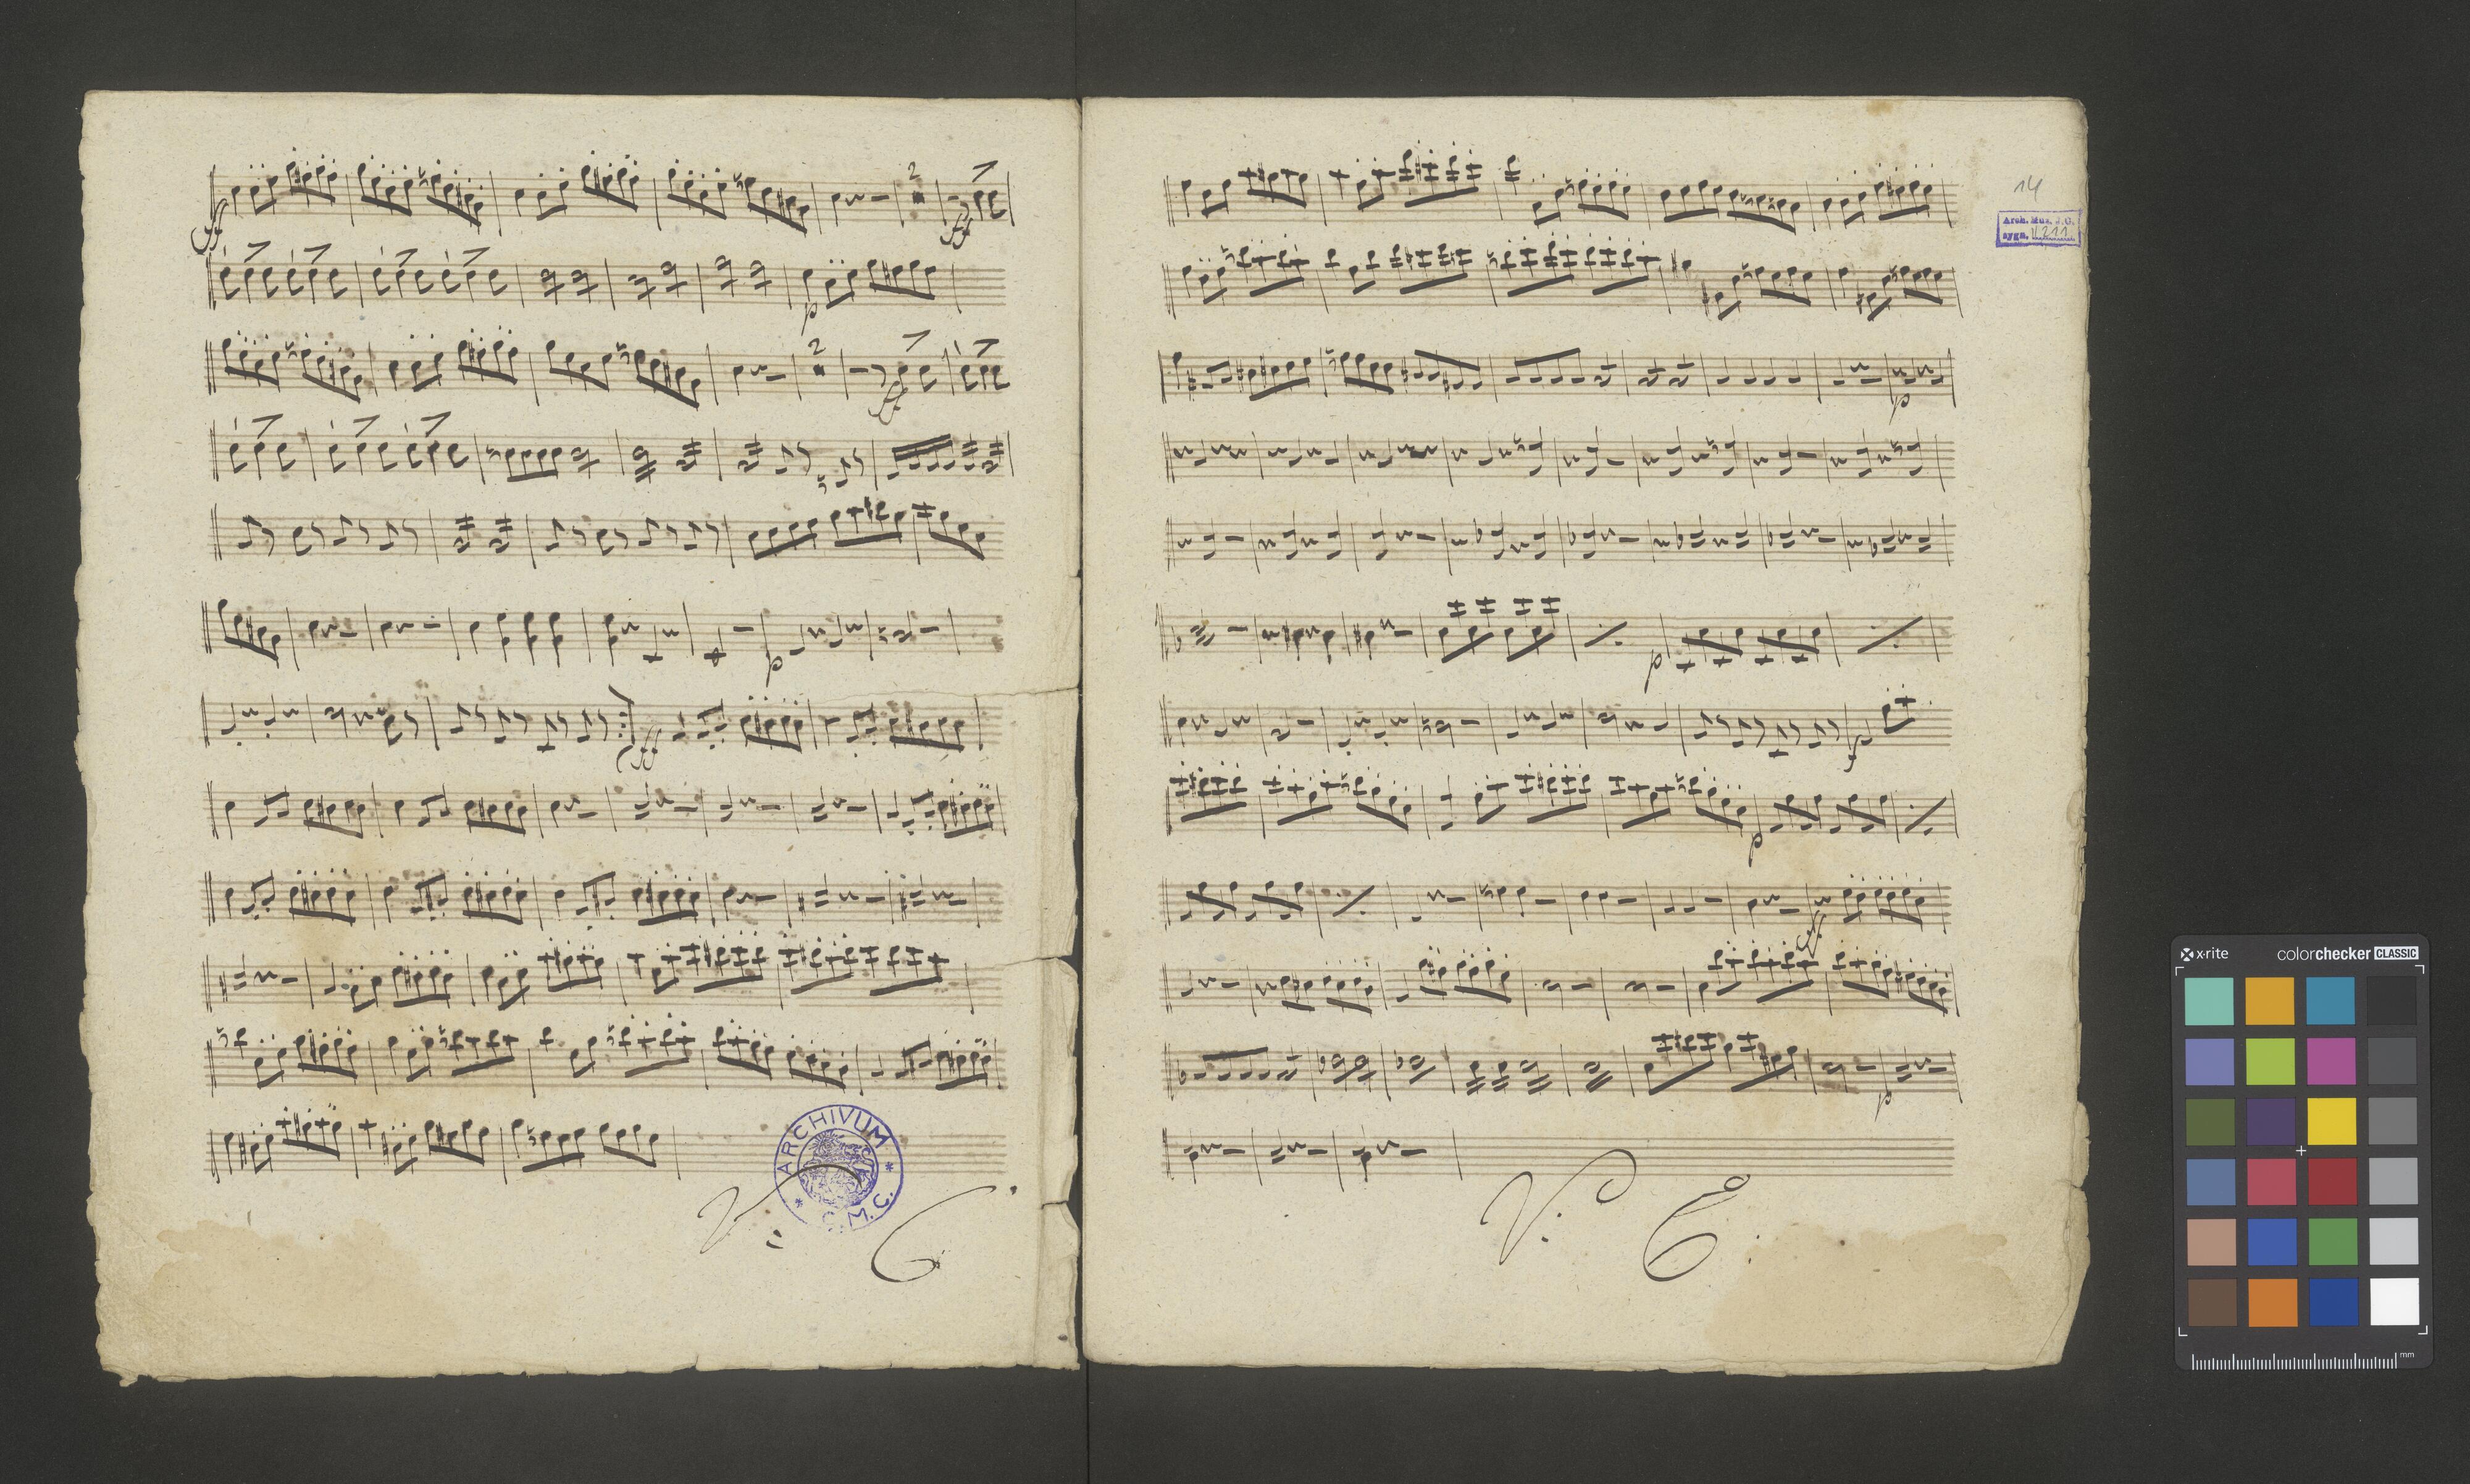 2
ff
ff
p
2
ff
p
ff
ARCHIVUM
* C. M. C. *
V:
14
Arch. Mus. J. G.
sygn. II 211
p
p
f
p
ff
p
V.
x-rite
colorchecker CLASSIC
mm